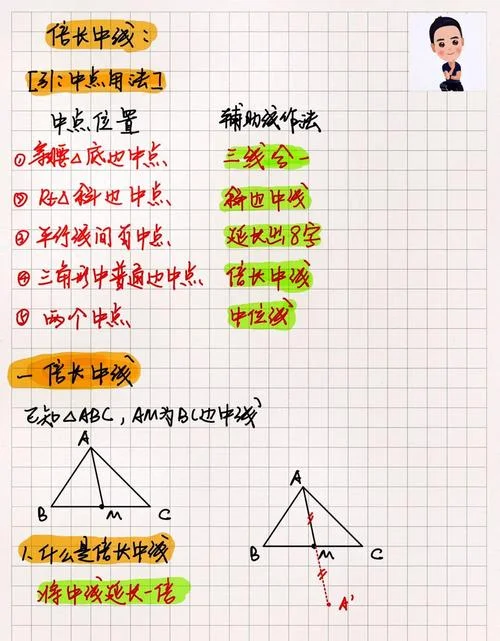 倍长中线:
[引:中点用法]
中点位置 辅助线作法
①等腰△底边中点 三线合一
② Rt△斜边中点 斜边中线
③ 平行线间有中点 延长出8字
④ 三角形中普通边中点 倍长中线
⑤ 两个中点 中位线
一 倍长中线
已知△ABC,AM为BC边中线
A
B M C
A
B M C
A'
1.什么是倍长中线
将中线延长一倍